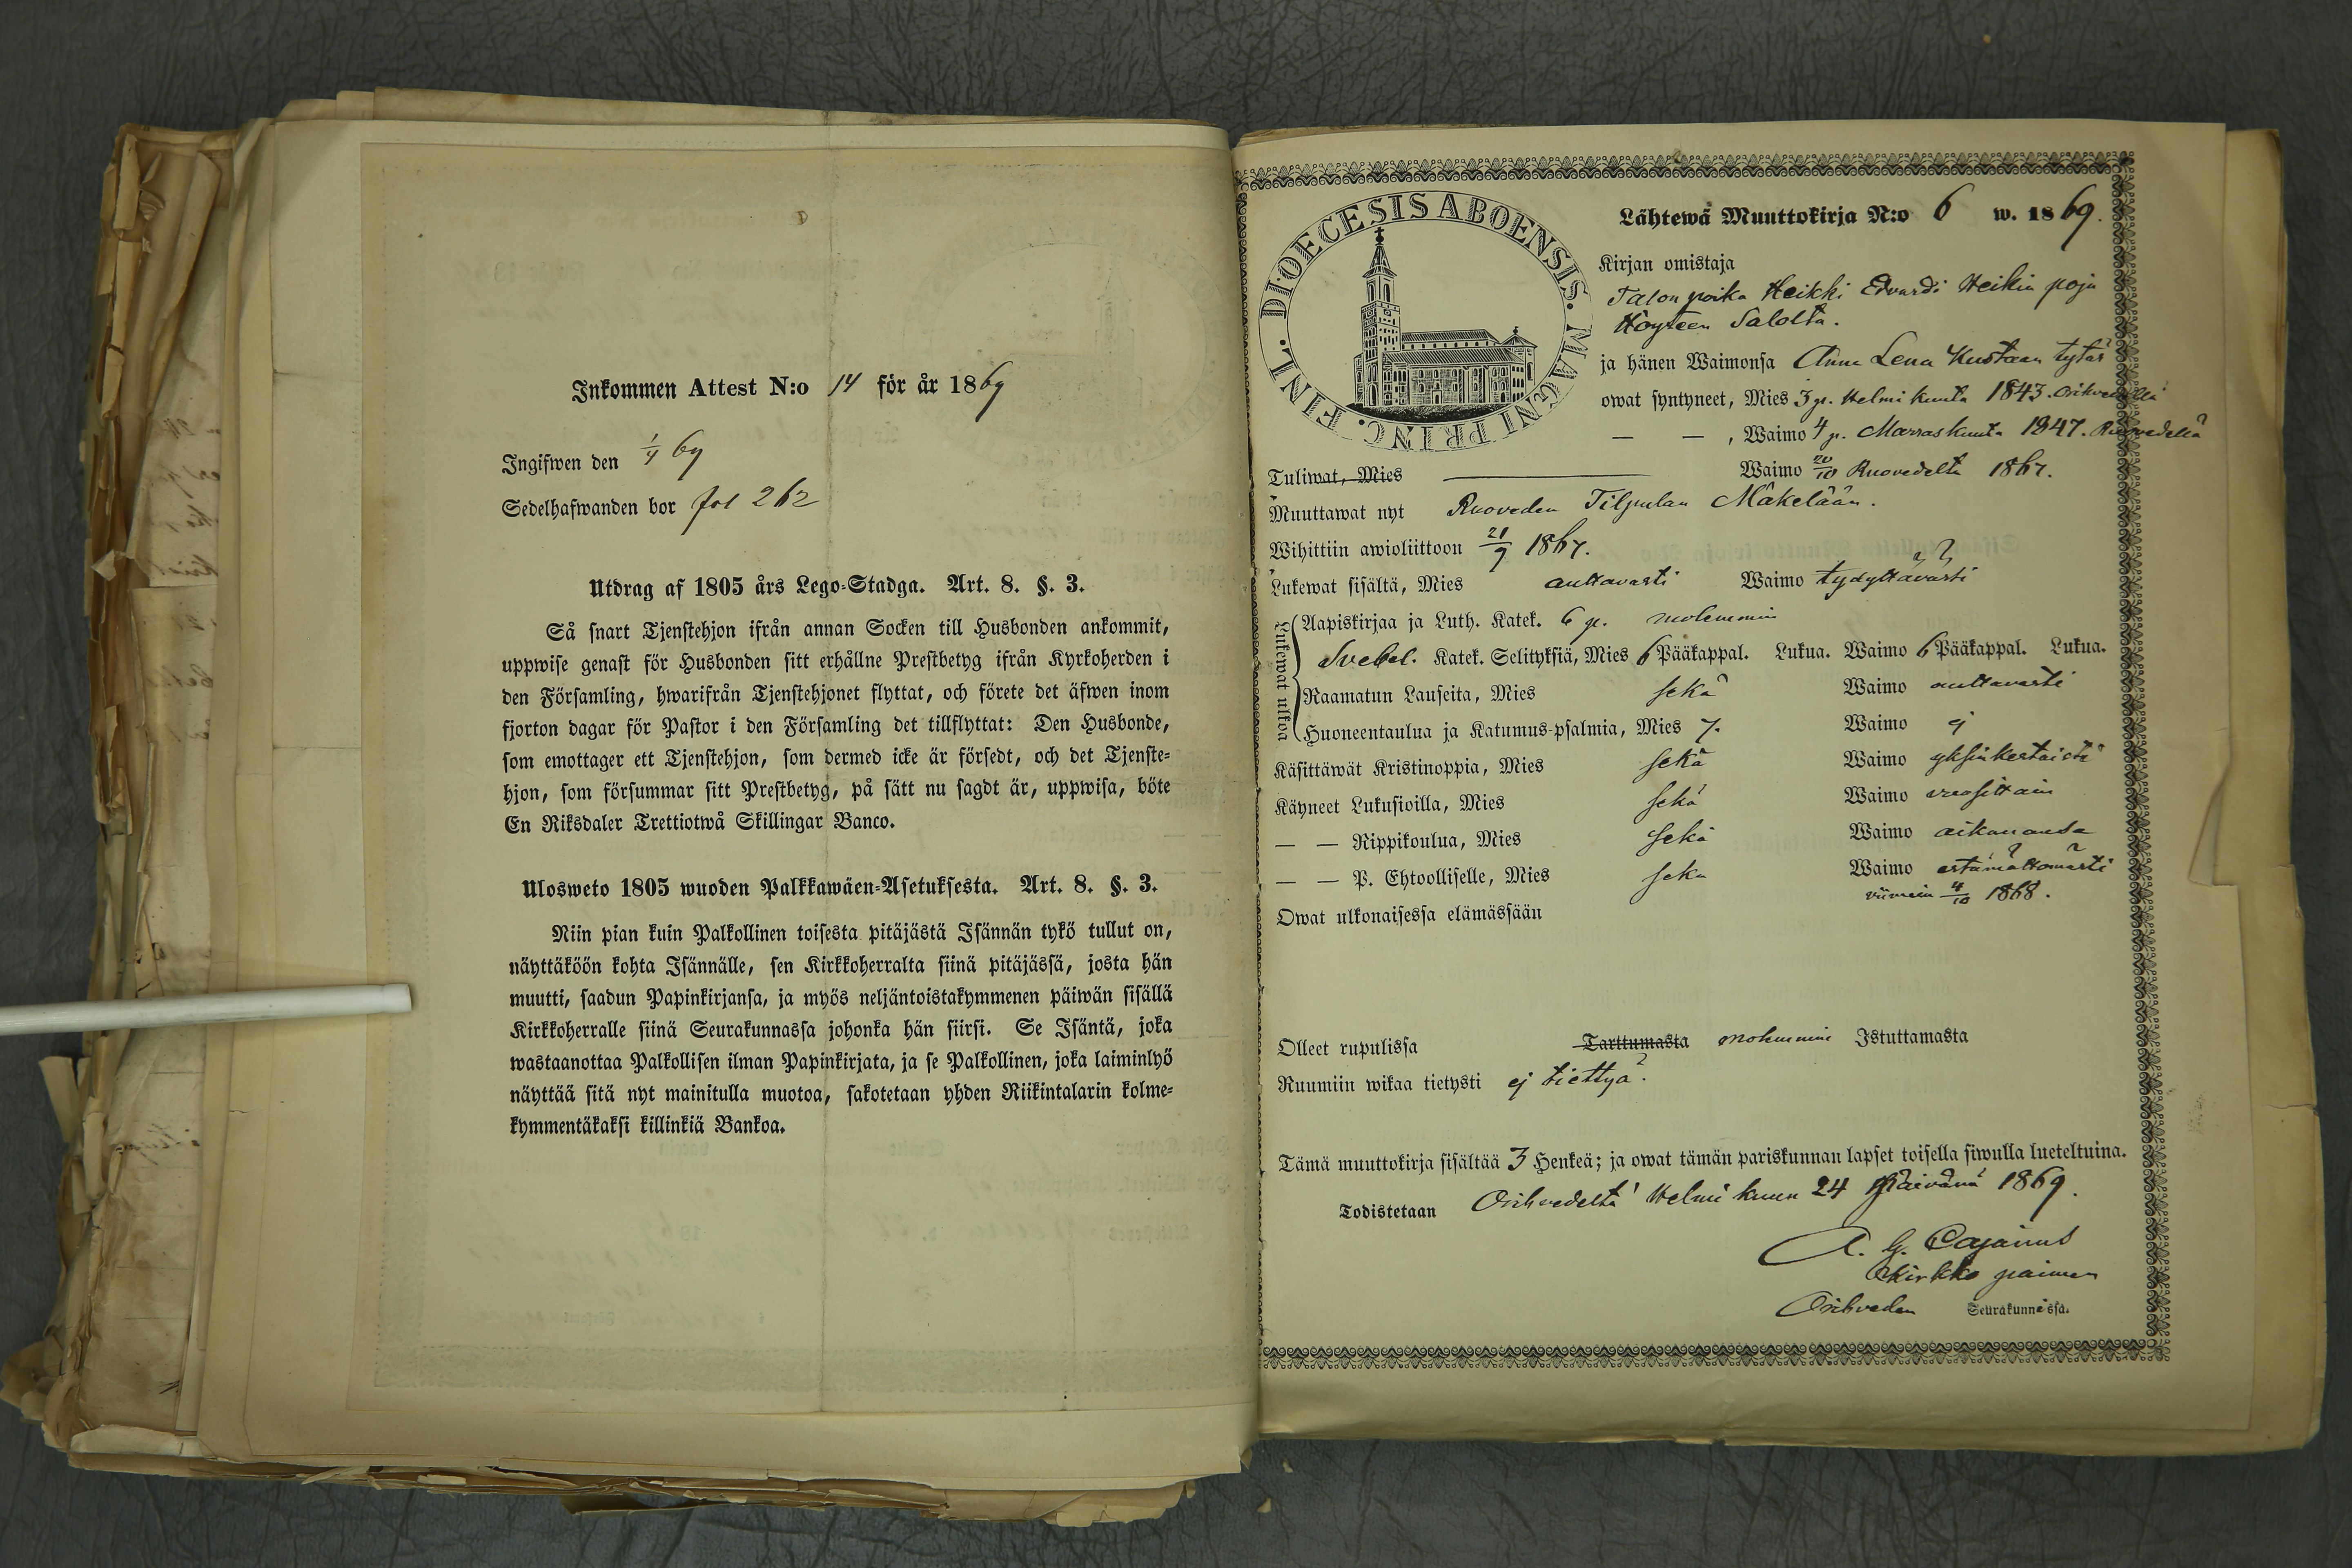 Inkommen Attest N:o 14 för år 1869
Ingifwen den 1/4 69
Sedelhafwanden bor fol 262
Utdrag af 1805 års Lego-Stadga. Art. 8. §. 3.
Så snart Tjenstehjon ifrån annan Socken till Husbonden ankommit,
uppwise genast för Husbonden sitt erhållne Prestbetyg ifrån Kyrkoherden i
den Församling, hwarifrån Tjenstehjonet flyttat, och förete det äfwen inom
fjorton dagar för Pastor i den Församling det tillflyttat: Den Husbonde,
som emottager ett Tjenstehjon, som dermed icke är försedt, och det Tjenste-
hjon, som försummar sitt Prestbetyg, på sätt nu sagdt är, uppwisa, böte
En Riksdaler Trettiotwå Skillingar Banco.
Ulosweto 1805 wuoden Palkkawäen-Asetuksesta. Art. 8. §. 3.
Niin pian kuin Palkollinen toisesta pitäjästä Isännän tykö tullut on,
näyttäköön kohta Isännälle, sen Kirkkoherralta siinä pitäjässä, josta hän
muutti, saadun Papinkirjansa, ja myös neljäntoistakymmenen päiwän sisällä
Kirkkoherralle siinä Seurakunnassa johonka hän siirsi. Se Isäntä, joka
wastaanottaa Palkollisen ilman Papinkirjata, ja se Palkollinen, joka laiminlyö
näyttää sitä nyt mainitulla muotoa, sakotetaan yhden Riikintalarin kolme-
kymmentäkaksi killinkiä Bankoa.
DIOECESIS ABOENSIS. MAGNI PRINC. FINL.
Lähtewä Muuttokirja N:o 6 w. 1869.
Kirjan omistaja
Talon poika Heikki Edvardi Heikin poja
Höyteen Salolta.
ja hänen Waimonsa Anna Lena Kustaan tytär
owat syntyneet, Mies 3 p. Helmi kuuta 1843. Orihvedellä
— — , Waimo 4 p. Marraskuuta 1847. Ruovedellä
Tuliwat, Mies — Waimo 20/10 Ruovedelta 1867.
Muuttawat nyt Ruoveden Tilpulan Mäkelään.
Wihittiin awioliittoon 21/9 1867.
Lukewat sisältä, Mies auttavasti Waimo tydyttävästi
Lukewat ulkoa
Aapiskirjaa ja Luth. Katek. 6 p. molemmin
Svebel. Katek. Selityksiä, Mies 6 Pääkappal. Lukua. Waimo 6 Pääkappal. Lukua.
Raamatun Lauseita, Mies sekä Waimo auttavasti
Huoneentaulua ja Katumus-psalmia, Mies 7. Waimo ej
Käsittäwät Kristinoppia, Mies sekä Waimo yksinkertaista
Käyneet Lukusioilla, Mies sekä Waimo vuosittain
— — Rippikoulua, Mies sekä Waimo aikananda
— — P. Ehtoolliselle, Mies sekä Waimo estämättomästi
viimein 4/10 1868.
Owat ulkonaisessa elämässään
Olleet rupulissa Tarttumasta molemmin Istuttamasta
Ruumiin wikaa tietysti ej tiettyä.
Tämä muuttokirja sisältää 3 Henkeä; ja owat tämän pariskunnan lapset toisella siwulla lueteltuina.
Todistetaan Orihvedeltä Helmi kuun 24 Päivänä 1869.
A. G. Cajanus
Kirkko paimen
Orihveden Seurakunnassa.